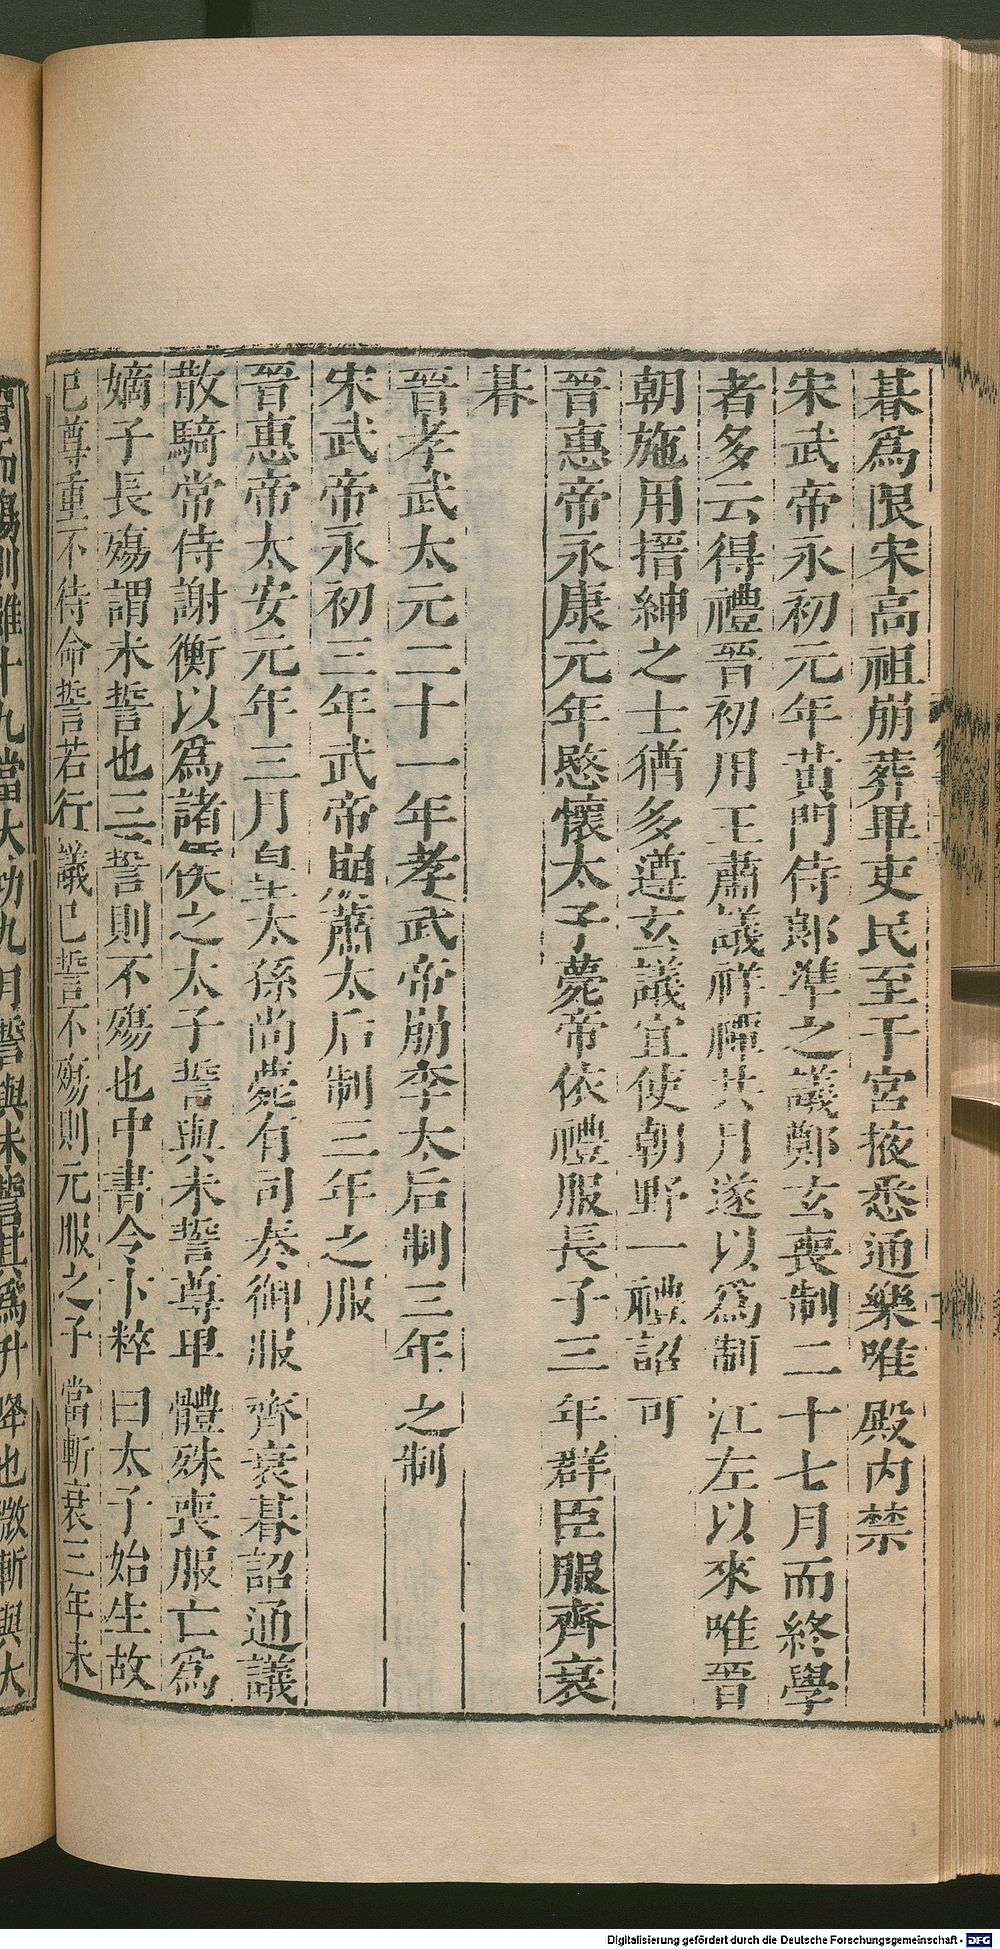 朞爲限宋高祖崩葬畢吏民至于宮掖悉通樂唯殿內禁
宋武帝永初元年黃門侍郎準之議鄭玄喪制二十七月而終學
者多云得禮晉初用王肅議祥禫共月遂以爲制江左以來唯晉
朝施用搢紳之士猶多遵玄議宜使朝野一禮詔可
晉惠帝永康元年愍懷太子薨帝依禮服長子三年群臣服齊衰
朞
晉孝武太元二十一年孝武帝崩李太后制三年之制
宋武帝永初三年武帝崩蕭太后制三年之服
晉惠帝太安元年三月皇太孫尚薨有司奏御服齊衰朞詔通議
散騎常侍謝衡以爲諸侯之太子誓與未誓尊卑體殊喪服亡爲
嫡子長殤謂未誓也三誓則不殤也中書令卞粹曰太子始生故
已尊重不待命誓若行議已誓不殤則元服之子當斬衰三年未
誓而殤則雖十九當大功九月誓與未誓其爲升降也微斬與大
Digitalisierung gefördert durch die Deutsche Forschungsgemeinschaft - DFG